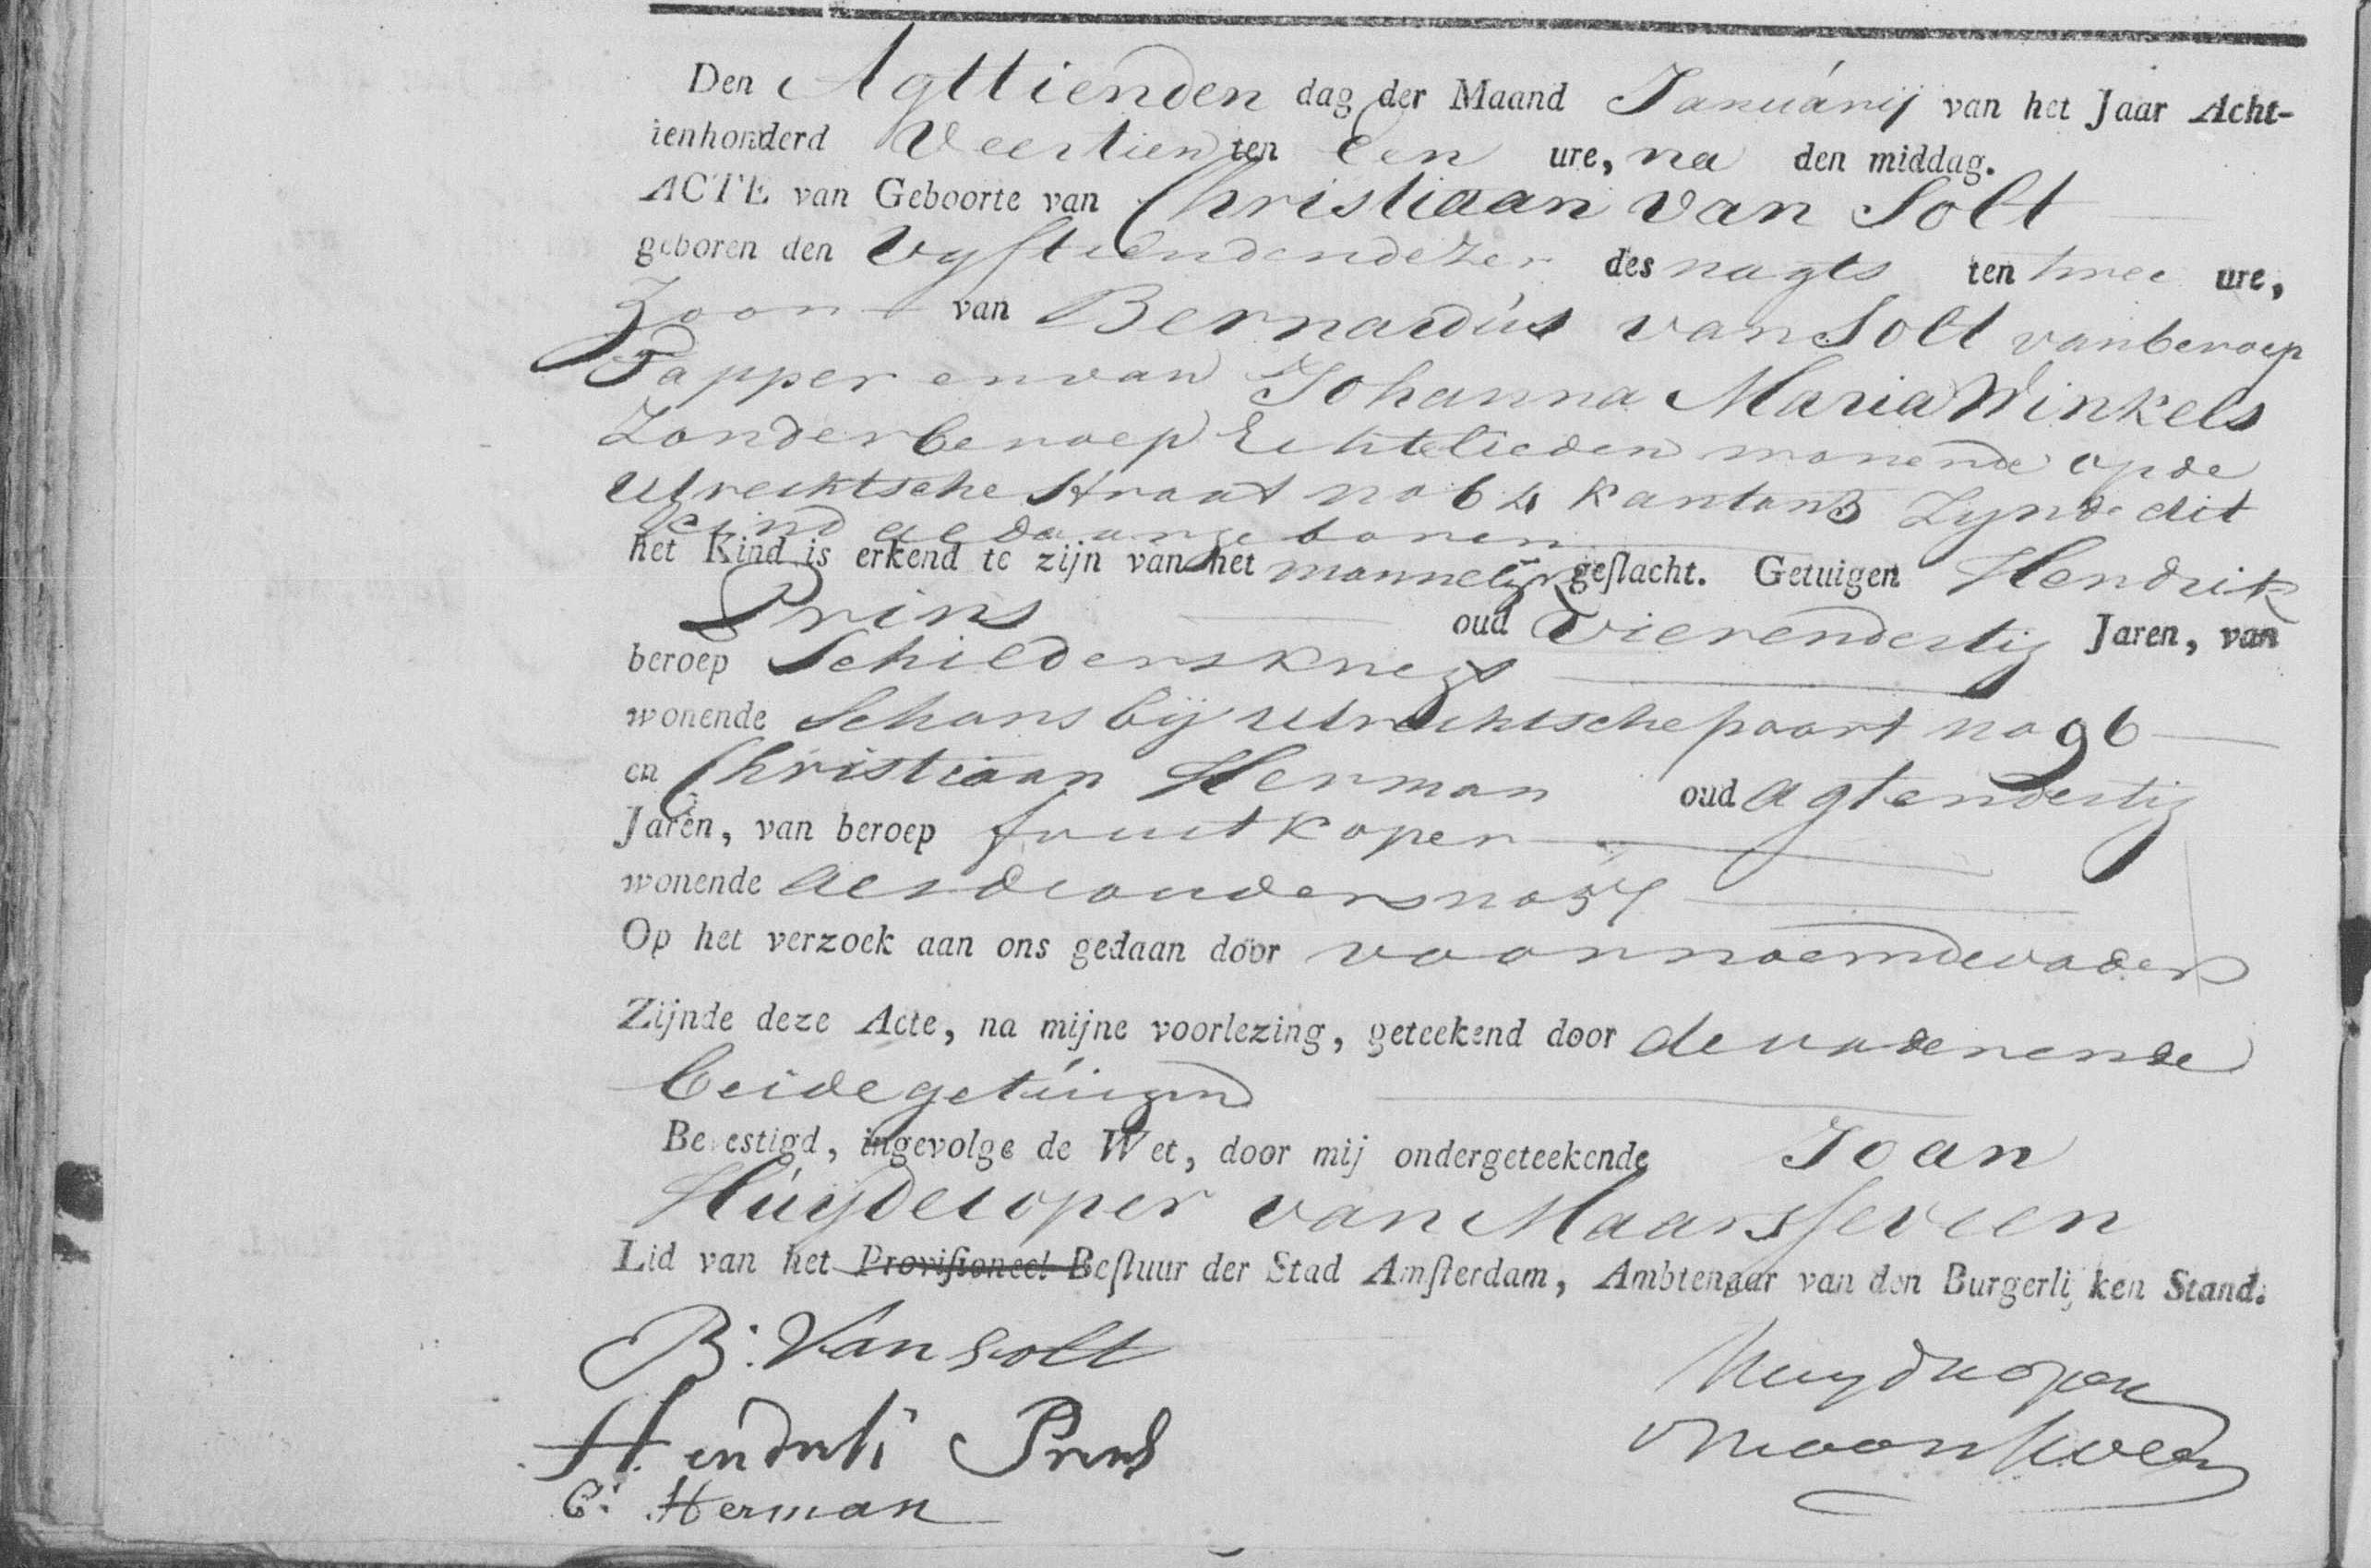 Den Agttienden dag der Maand Januárij van het Jaar Acht-
ienhonderd Veertien ten Een ure, na den middag.
ACTE van Geboorte van Christiaan van Solt
geboren den Vyftiendendezer des nagts ten twee ure,
Zoon van Bernardús van Solt van beroep
Tapper en van Johanna Maria Winkels
Zonder beroep Echtelieden wonende op de
Utrechtsche Straat no 64 kanton 3 Zynde dit
kind aldaar geboren
het Kind is erkend te zijn van het mannelijk geslacht. Getuigen Hendrik
Prins oud Vierendertig Jaren, van
beroep Schildersknegt
wonende Schans bij Utrechtsche poort no 96
en Christiaan Herman oud agtendertig
Jaren, van beroep fruitkoper
wonende
Op het verzoek aan ons gedaan door voornoemde vader
Zijnde deze Acte, na mijne voorlezing, geteekend door de vader en de
beide getúigen
Bevestigd, ingevolge de Wet, door mij ondergeteekende Joan
Húijdecoper van Maarsseveen
Lid van het Provisioneel Bestuur der Stad Amsterdam, Ambtenaar van den Burgerlijken Stand.
B. Van solt
Huydecoper
Hendrik Prins
vMaarsseveen
C. Herman